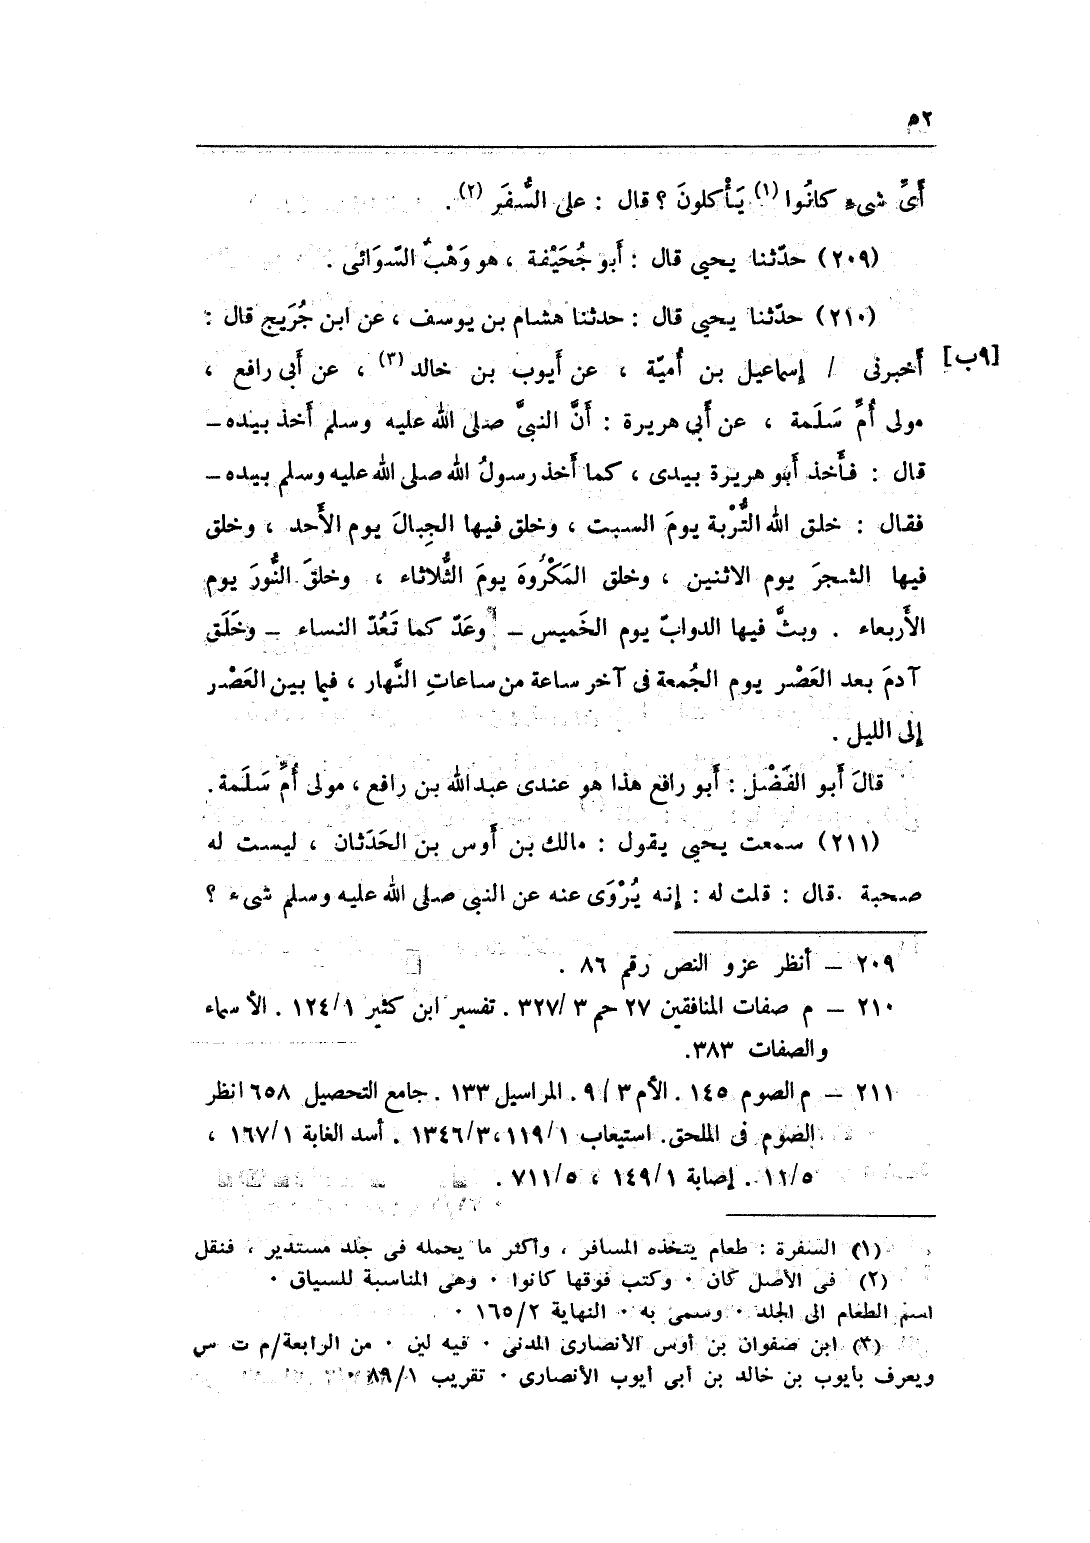 ٥٢
أَىِّ شىء كانُوا (١) يَأْكلونَ ؟ قال : على السُّفَر (٢) .
(٢٠٩) حدّثنا يحيى قال : أَبو جُحَيْفة ، هو وَهْبُ السّوَائى .
(٢١٠) حدّثنا يحيى قال : حدثنا هشام بن يوسف ، عن ابن جُرَيج قال :
[٩ب] أَخبرنى / إسماعيل بن أُميّة ، عن أَيوب بن خالد (٣) ، عن أَبى رافع ،
مولى أُمِّ سَلَمة ، عن أَبى هريرة : أَنَّ النبىَّ صلى الله عليه وسلم أَخذ بيده ــ
قال : فأَخذ أَبو هريرة بيدى ، كما أَخذ رسولُ الله صلى الله عليه وسلم بيده ــ
فقال : خلق الله التُّرْبة يومَ السبت ، وخلق فيها الجِبالَ يوم الأَحد ، وخلق
فيها الشجرَ يوم الاثنين ، وخلق المَكْرُوهَ يومَ الثُّلاثاء ، وخلقَ النُّورَ يوم
الأَربعاء . وبثَّ فيها الدوابّ يوم الخَميس ــ وعَدّ كما تَعُدّ النساء ــ وخَلَق
آدمَ بعد العَصْر يوم الجُمعة فى آخر ساعة من ساعاتِ النَّهار ، فيما بين العَصْر
إلى الليل .
قالَ أَبو الفَضْل : أَبو رافع هذا هو عندى عبدالله بن رافع ، مولى أُمِّ سَلَمة .
(٢١١) سمعت يحيى يقول : مالك بن أَوس بن الحَدَثان ، ليست له
صحبة . قال : قلت له : إنه يُرْوَى عنه عن النبى صلى الله عليه وسلم شىء ؟
٢٠٩ ــ أنظر عزو النص رقم ٨٦ .
٢١٠ ــ م صفات المنافقين ٢٧ حم ٣٢٧/٣ . تفسير ابن كثير ١٢٤/١ . الأسماء
والصفات ٣٨٣.
٢١١ ــ م الصوم ١٤٥ . الأم ٣ / ٩ . المراسيل ١٣٣ . جامع التحصيل ٦٥٨ انظر
الصوم فى الملحق. استيعاب ١١٩/١،٣/١٣٤٦ . أسد الغابة ١٦٧/١ ،
١٢/٥ . إصابة ١٤٩/١ ، ٧١١/٥ .
(١) السفرة : طعام يتخذه المسافر ، وأكثر ما يحمله فى جلد مستدير ، فنقل
(٢) فى الأصل كان ٠ وكتب فوقها كانوا ٠ وهى المناسبة للسياق ٠
اسم الطعام الى الجلد ٠ وسمى به ٠ النهاية ١٦٥/٢ ٠
(٣) ابن صفوان بن أوس الأنصارى المدنى ٠ فيه لين ٠ من الرابعة/م ت س
ويعرف بأيوب بن خالد بن أبى أيوب الأنصارى ٠ تقريب ٨٩/١ ٠